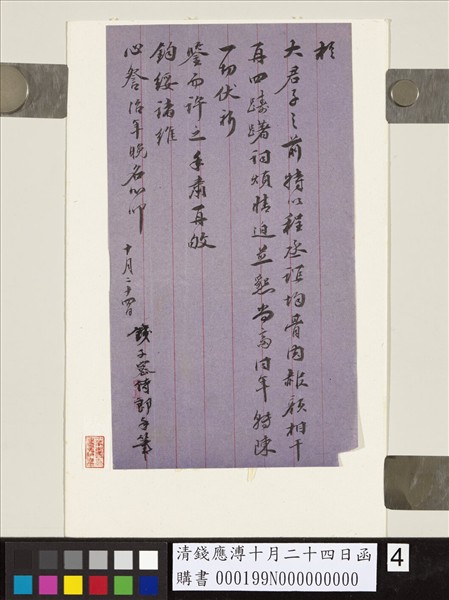 於
大君子之前特以程丞誼均骨肉赧顏相干
再四躊躇詞煩情迫並懇尚齋同年特陳
一切伏祈
鑒而許之手肅再敂
鈞綏諸維
心詧治年晚名心叩 十月二十四日
錢子密侍郎手筆
清錢應溥十月二十四日函
購書 000199N000000000
4